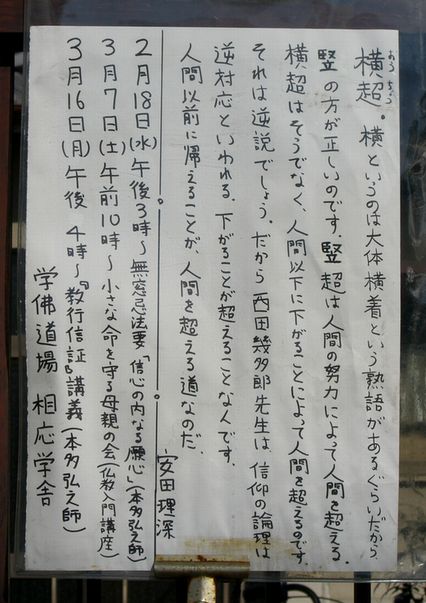 おうちょう
横超。横というのは大体横着という熟語があるぐらいだから
竪の方が正しいのです。竪超は人間の努力によって人間を超える。
横超はそうでなく、人間以下に下がることによって人間を超えるのです。
それは逆説でしょう。だから西田幾多郎先生は、信仰の論理は
逆対応といわれる。下がることが超えることなんです。
人間以前に帰えることが、人間を超える道なのだ。
安田理深
2月18日(水)午後3時～無窓忌法要「信心の内なる願心」(本多弘之師)
3月7日(土)午前10時～小さな命を守る母親の会(仏教入門講座)
3月16日(月)午後4時～『教行信証』講義(本多弘之師)
学佛道場 相応学舎